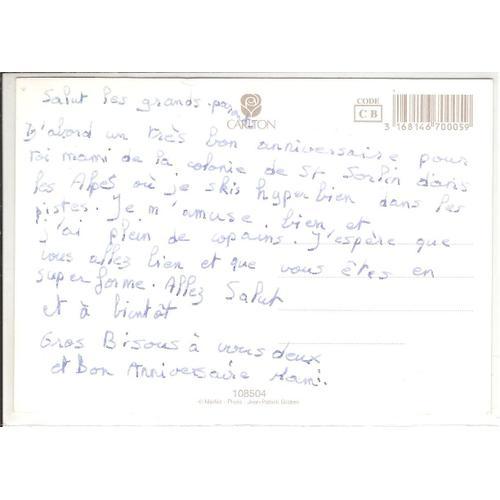 Salut les grands-parents
CARLTON
CODE
CB
3 168146 700059
D'abord un très bon anniversaire pour
toi mami de la colonie de St Sorlin dans
les Alpes où je skis hyper bien dans les
pistes. Je m'amuse bien, et
j'ai plein de copains. J'espère que
vous allez bien et que vous êtes en
super forme. Allez Salut
et à bientôt
Gros Bisous à vous deux
et Bon Anniversaire Mami.
108504